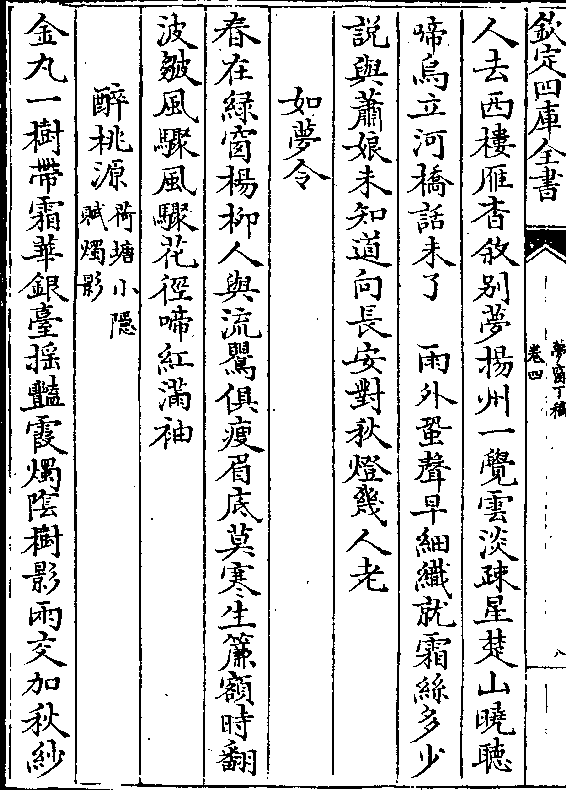 欽定四庫全書
夢窗丁稿
卷四
八
人去西樓雁杳敘别夢揚州一覺雲淡疎星楚山曉聽
啼烏立河橋話未了　雨外蛩聲早細織就霜絲多少
說與蕭娘未知道向長安對秋燈幾人老
如夢令
春在綠窗楊柳人與流鶯俱瘦眉底莫寒生簾額時翻
波皺風驟風驟花徑啼紅滿袖
醉桃源 荷塘小隱
賦燭影
金丸一樹帶霜華銀臺揺豔霞燭陰樹影兩交加秋紗